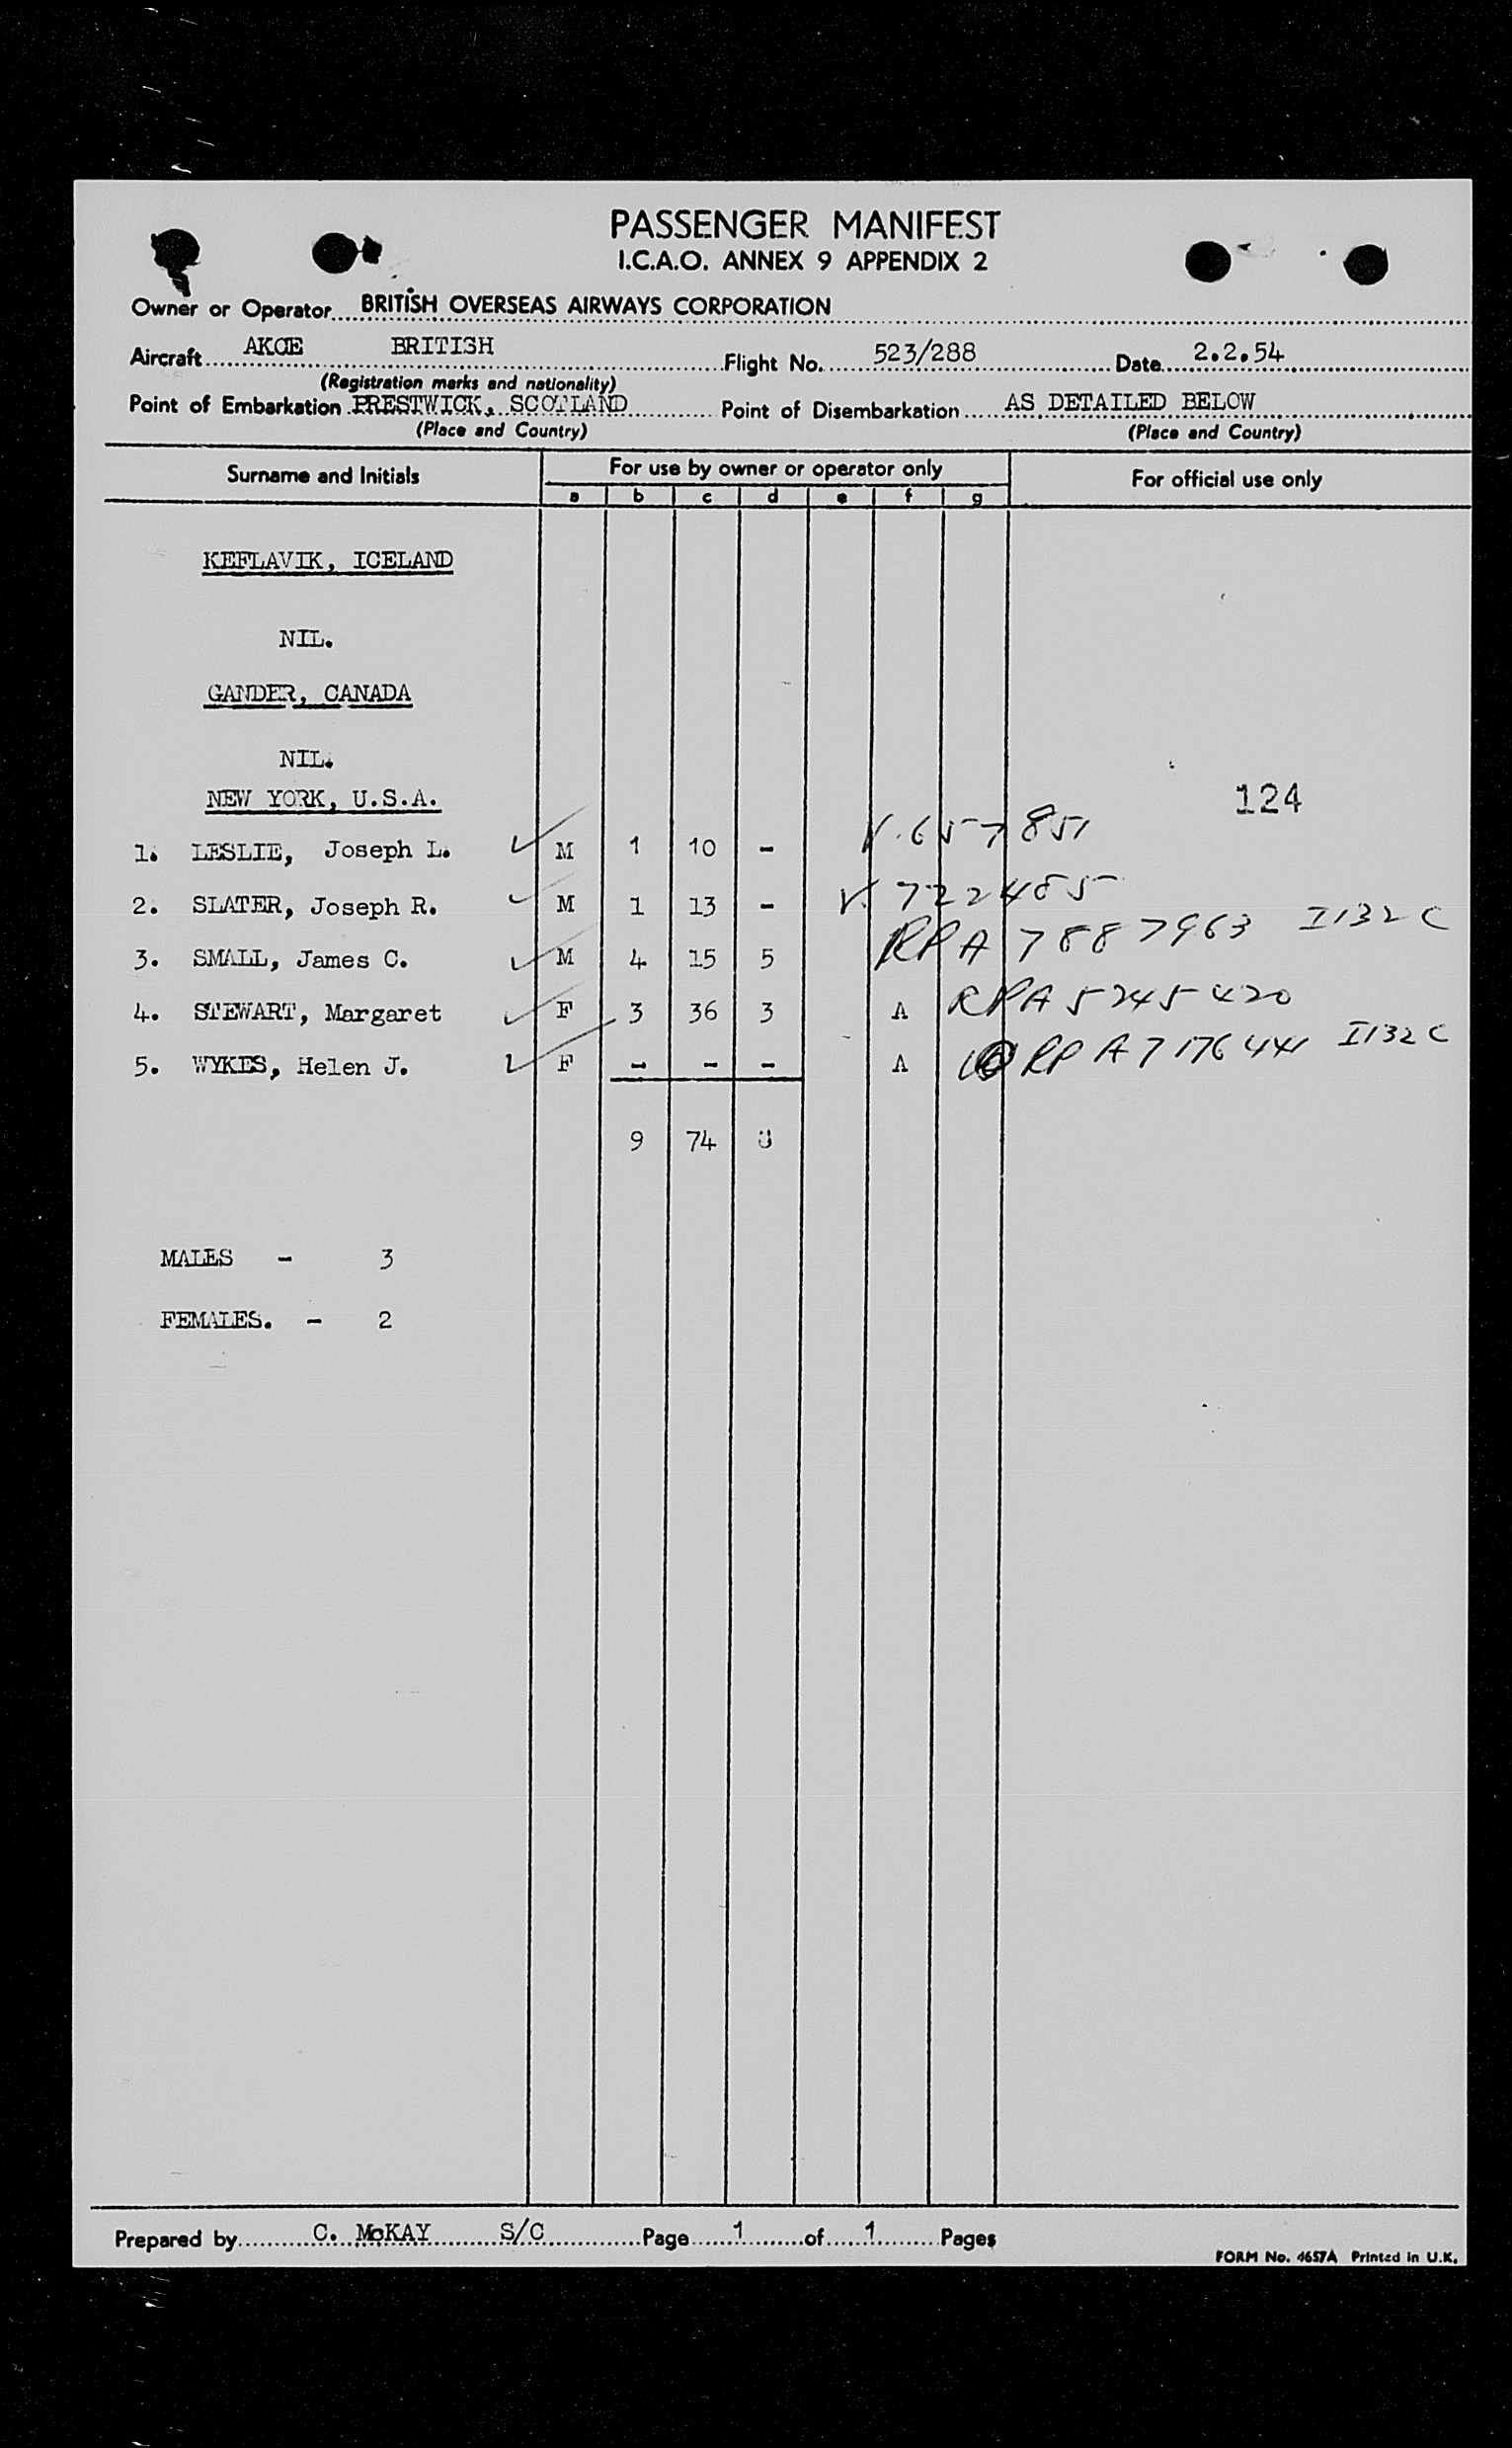 PASSENGER MANIFEST
I.C.A.O. ANNEX 9 APPENDIX 2
Owner or Operator BRITISH OVERSEAS AIRWAYS CORPORATION
Aircraft AKOE BRITISH Flight No. 523/288 Date 2.2.54
(Registration marks and nationality)
Point of Embarkation PRESTWICK, SCOTLAND Point of Disembarkation AS DETAILED BELOW
(Place and Country) (Place and Country)
Surname and Initials For use by owner or operator only For official use only
a b c d e f g
KEFLAVIK, ICELAND
NIL.
GANDER, CANADA
NIL.
NEW YORK, U.S.A. 124
1. LESLIE, Joseph L. M 1 10 - V. 657851
2. SLATER, Joseph R. M 1 13 - V. 722485
3. SMALL, James C. M 4 15 5 RPA 7887963 I132C
4. STEWART, Margaret F 3 36 3 A RPA 5245420
5. WYKES, Helen J. F - - - A RP A7176441 I132C
9 74 8
MALES - 3
FEMALES. - 2
Prepared by C. McKAY S/C Page 1 of 1 Pages
FORM No. 4657A Printed in U.K.